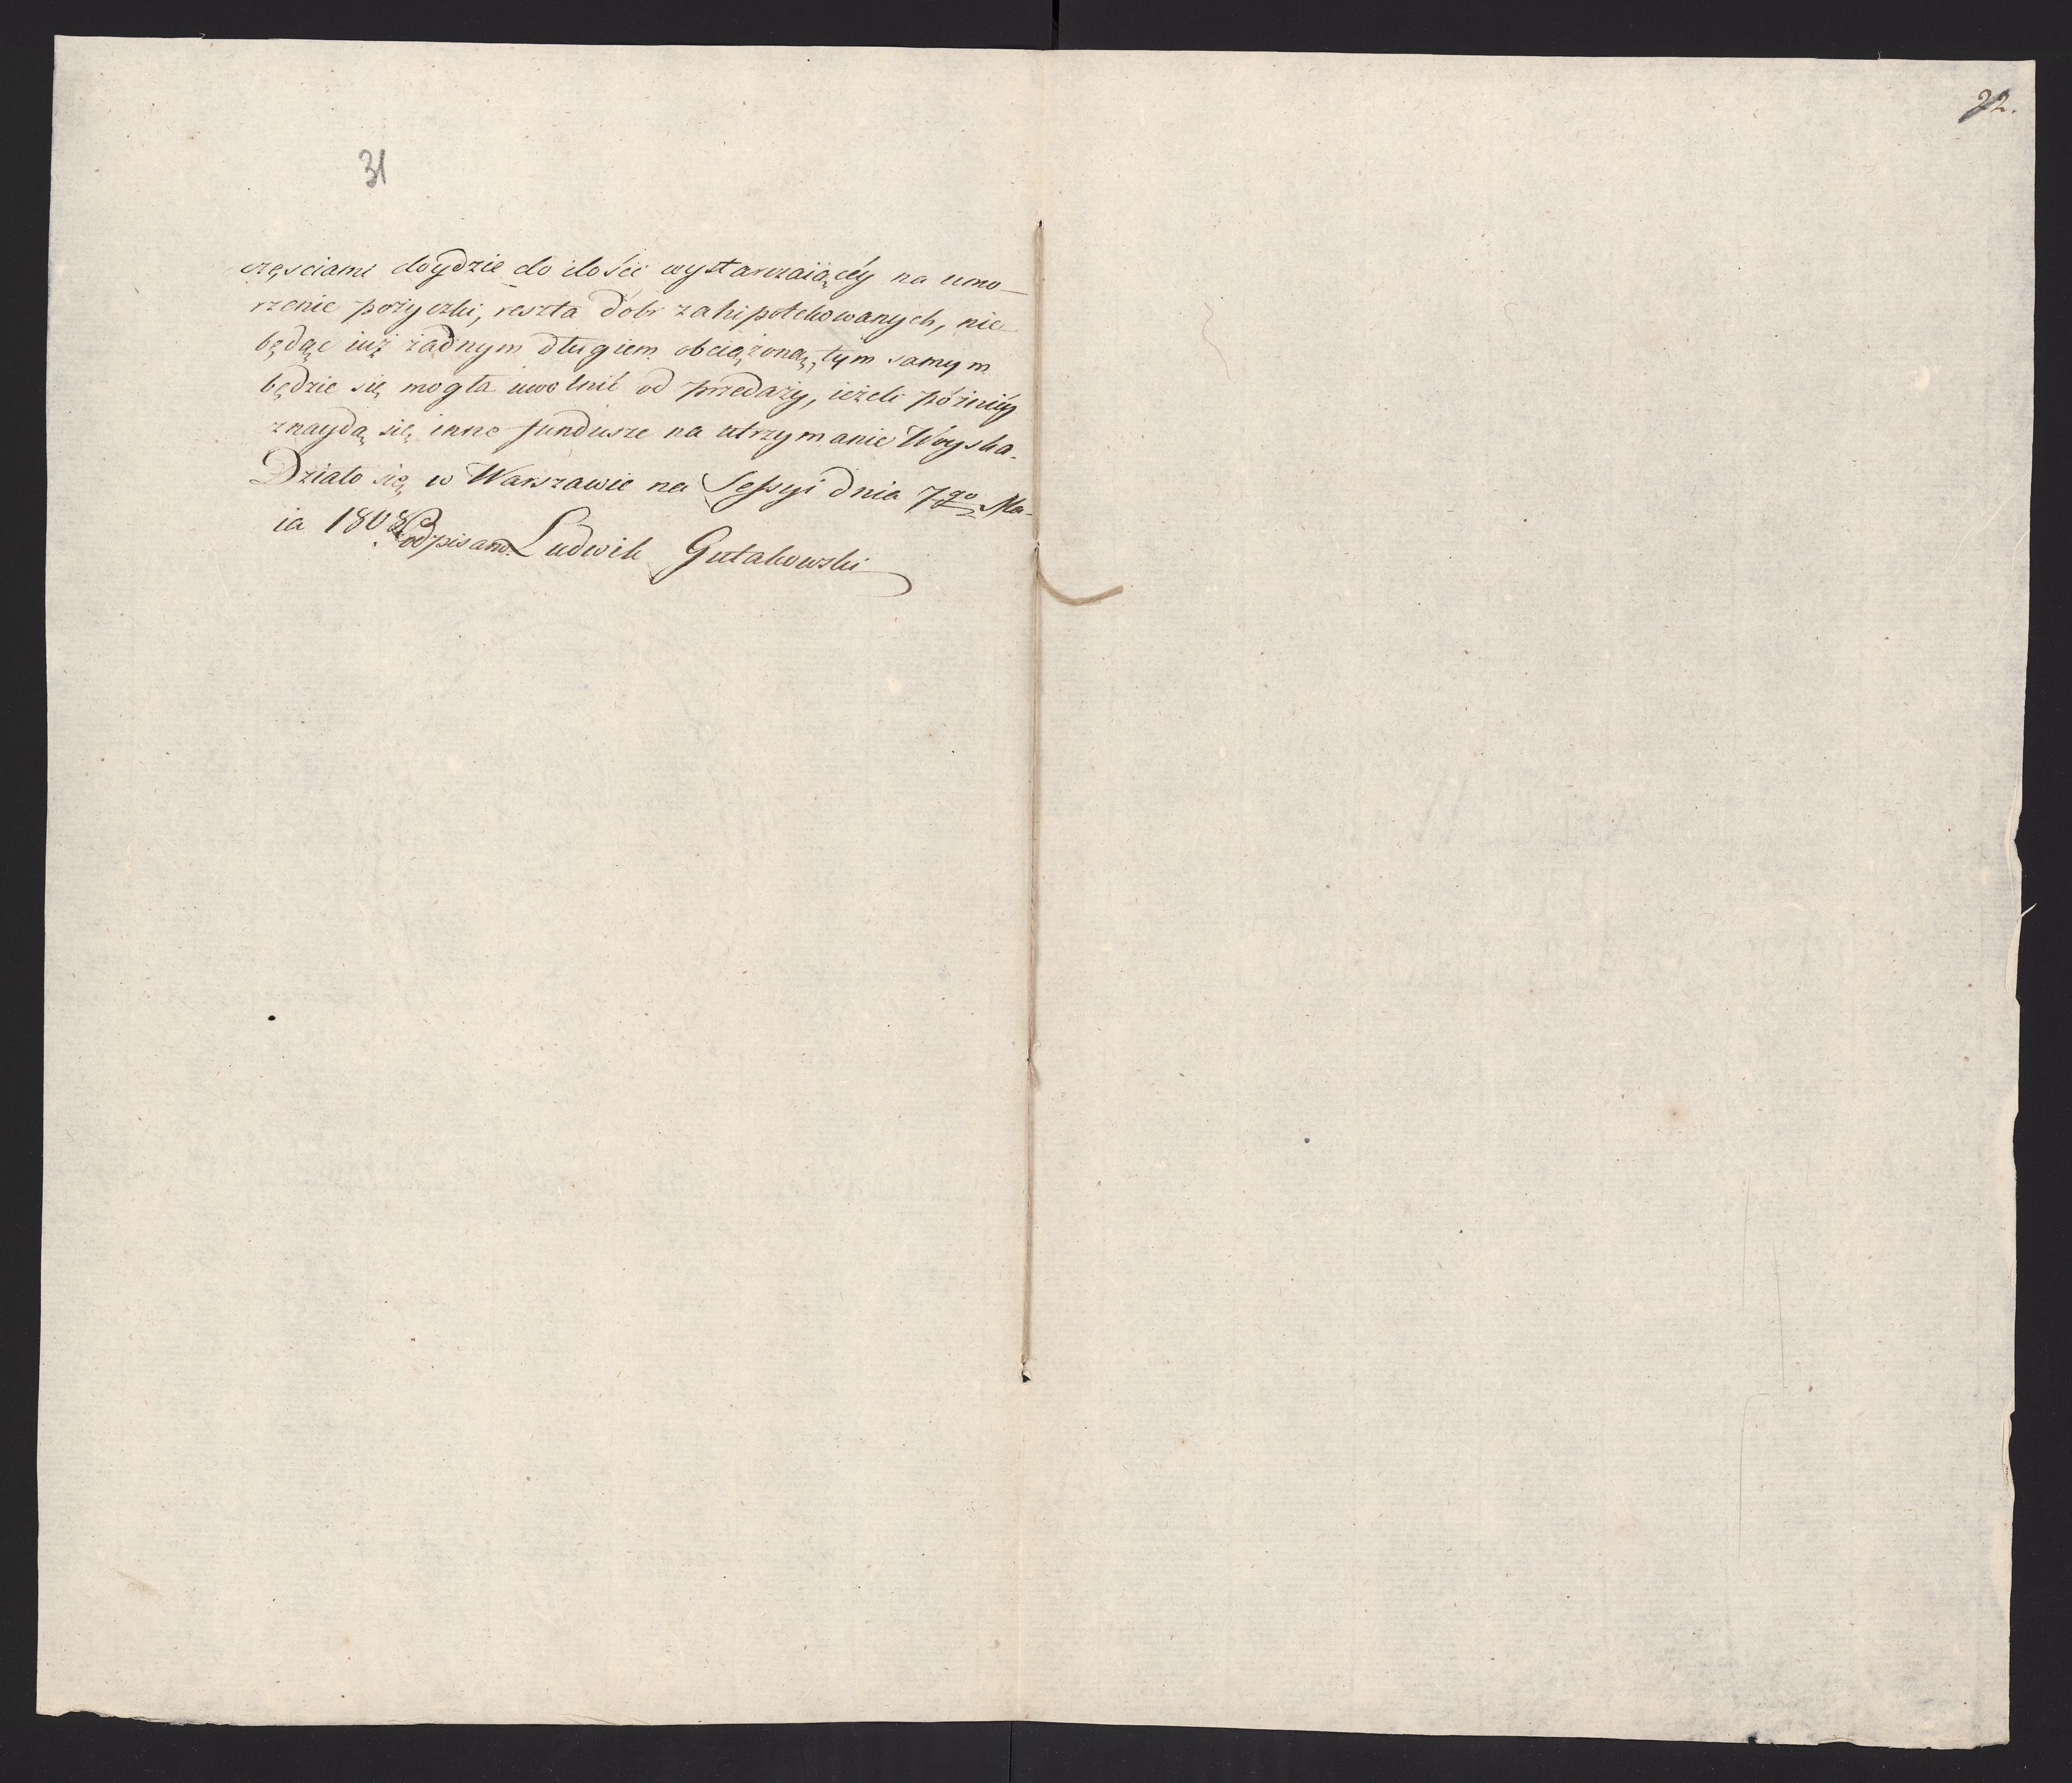 31
częsciami doydzie do ilości wystarczaiącéy na umo-
rzenie pożyczki, reszta dóbr zahipotekowanych, nie
będąc iuż żadnym długiem obciążoną, tym samym
będzie się mogła uwolnić od przedaży, ieżeli późniéy
znaydą się inne fundusze na utrzymanie Woyska.
Działo się w Warszawie na Sessyi dnia 7go Ma-
ia 1808. Podpisano. Ludwik Gutakowski